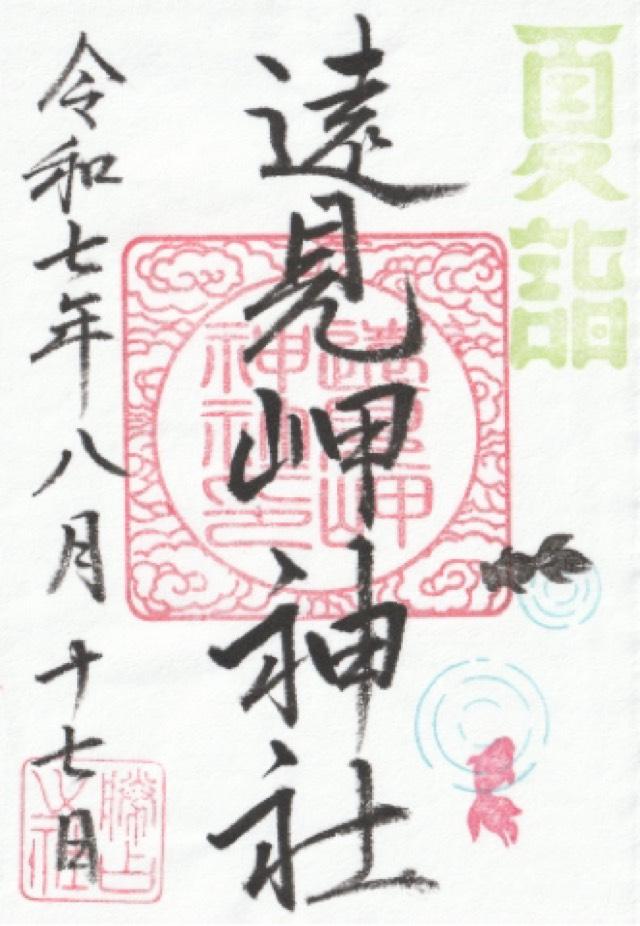 夏詣
遠見岬神社
遠見岬
神社之印
令和七年八月十七日